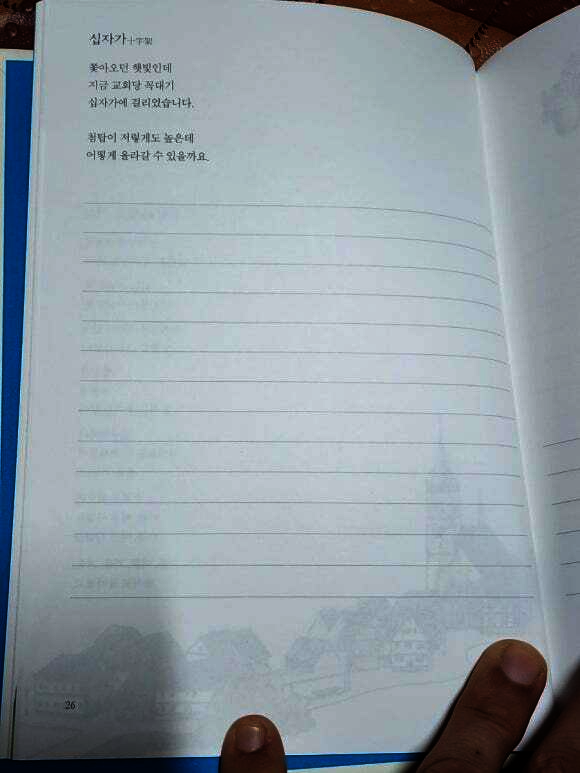 십자가 十字架
쫓아오던 햇빛인데
지금 교회당 꼭대기
십자가에 걸리었습니다.
첨탑이 저렇게도 높은데
어떻게 올라갈 수 있을까요.
26